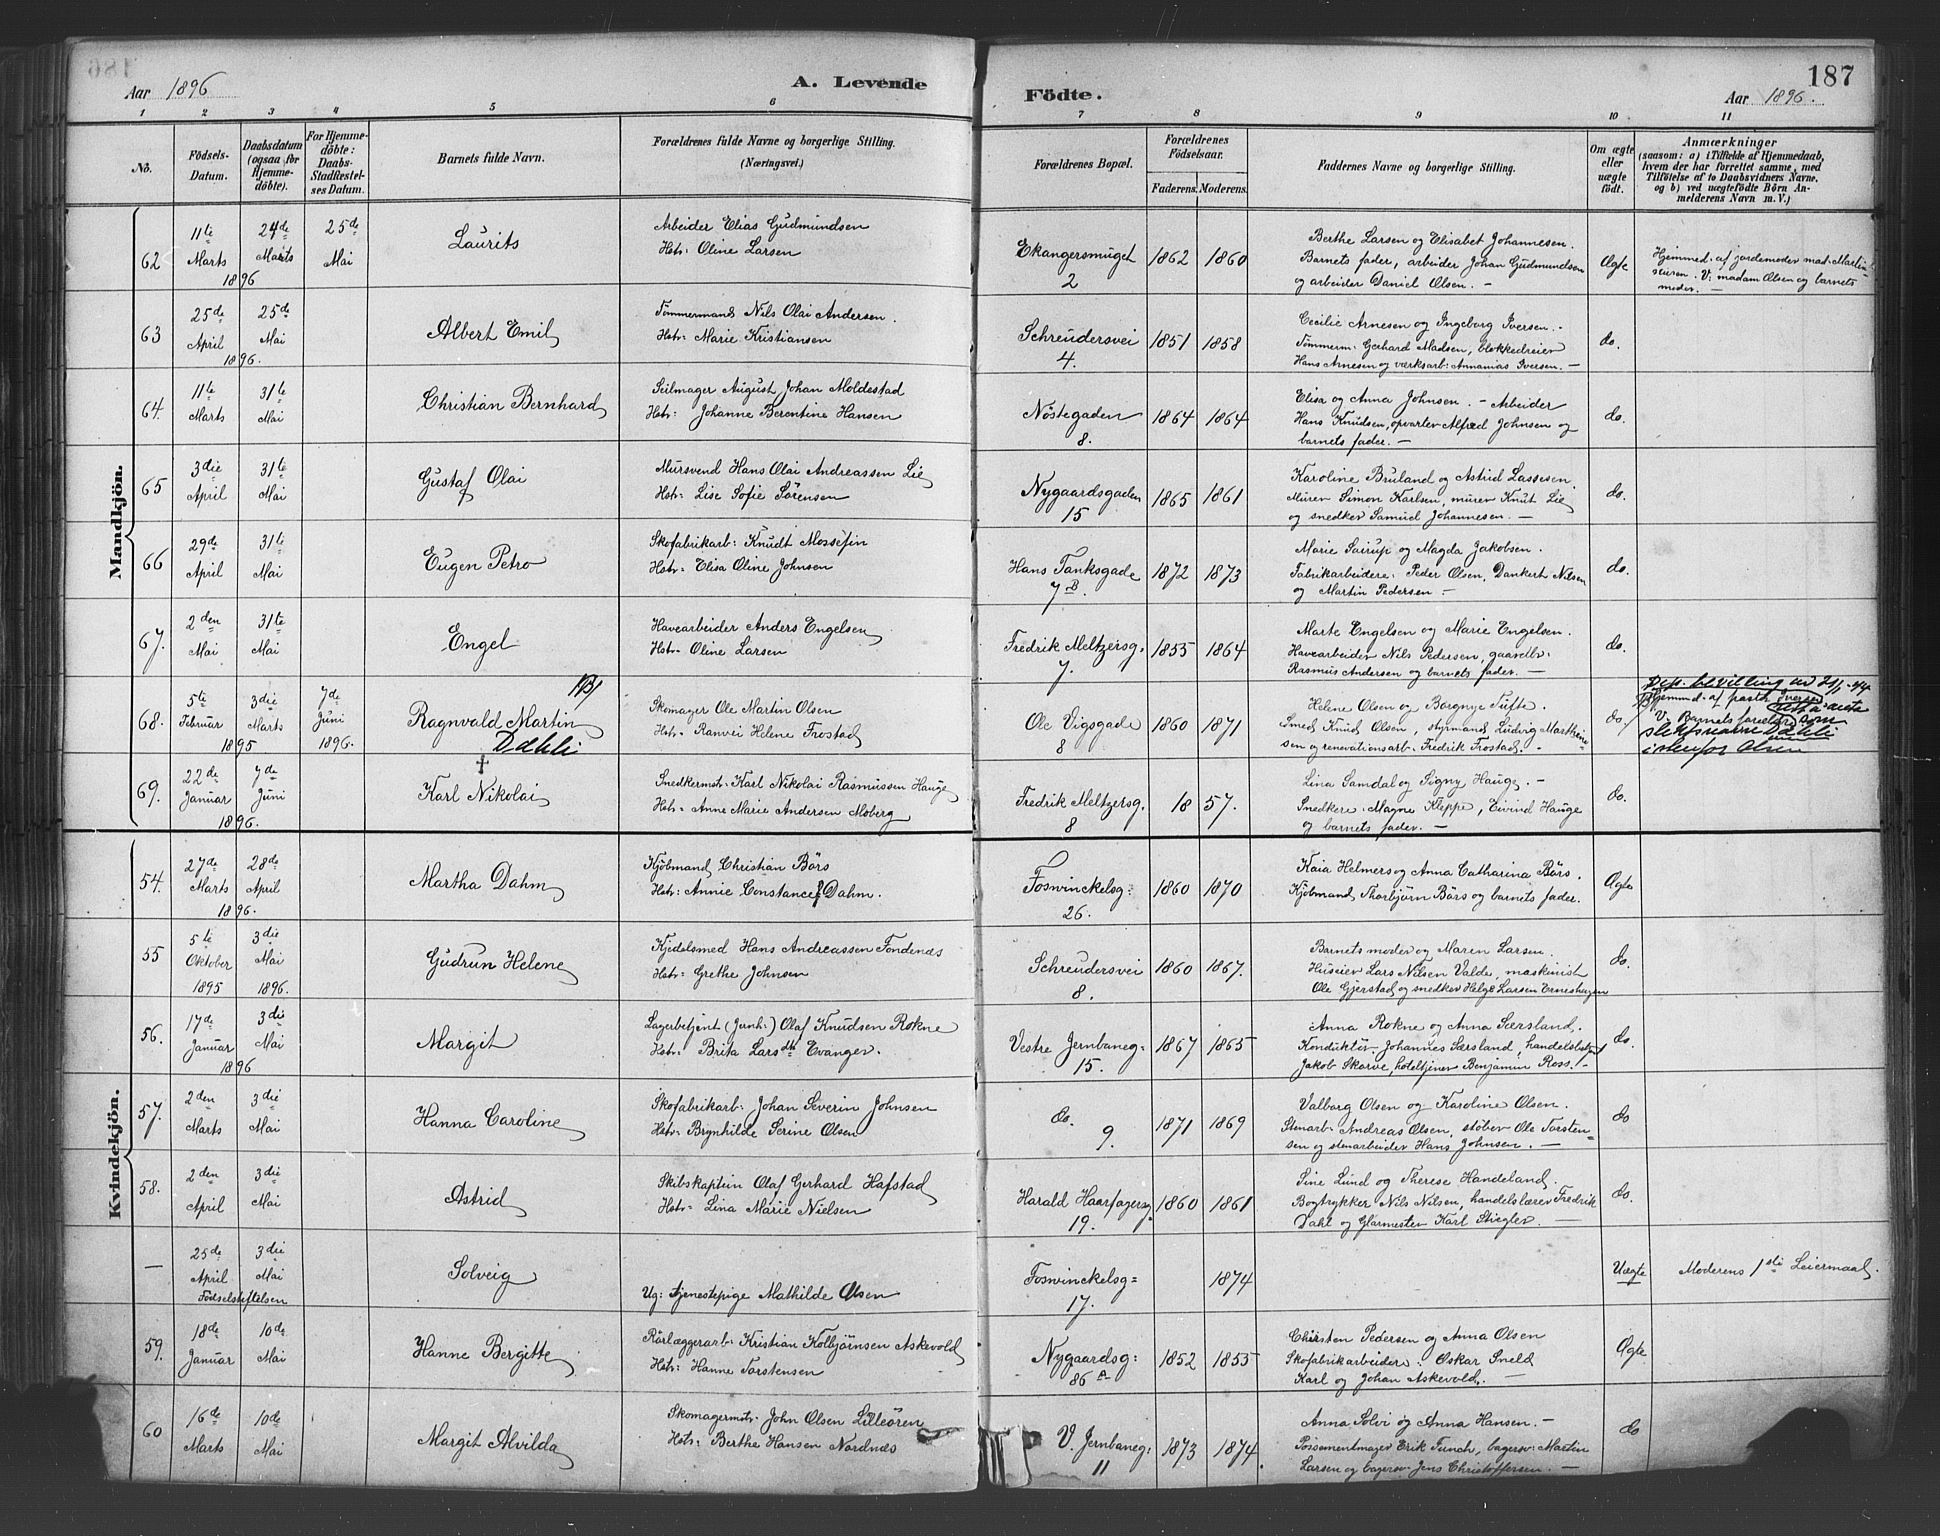 186
Aar 1896
A. Levende
Födte.
187
Aar 1896.
1 2 3 4 5 6 7 8 9 10 11
No.
Födsels-Datum.
Daabsdatum (ogsaa for Hjemme-döbte).
For Hjemme-döbte: Daabs-Stadfæstel-ses Datum.
Barnets fulde Navn.
Forældrenes fulde Navne og borgerlige Stilling.
(Næringsvei.)
Forældrenes Bopæl.
Forældrenes Födselsaar.
Faderens. Moderens.
Faddernes Navne og borgerlige Stilling.
Om ægte eller uægte födt.
Anmærkninger
(saasom: a) i Tilfælde af Hjemmedaab, hvem der har forrettet samme, med Tilföielse af to Daabsvidners Navne, og b) ved uægtefödte Börn Anmelderens Navn m. V.)
Mandkjön.
62 11te Marts 1896 24de Marts 25de Mai Laurits
Arbeider Elias Gudmundsen
Hstr: Oline Larsen
Ekangersmuget 2 1862 1860
Berthe Larsen og Elisabet Johannesen.
Barnets fader, arbeider Johan Gudmundsen
og arbeider Daniel Olsen. —
Ægte
Hjemmed. af jordemoder mad. Martin-
seusen. V: madam Olsen og barnets
moder. —
63 25de April 1896. 25de Mai Albert Emil
Tömmermand Nils Olai Andersen.
Hstr: Marie Kristiansen
Schreudersvei 4. 1851 1858
Cecilie Arnesen og Ingeborg Iversen. -
Tömmerm: Gerhard Madsen, blokkedreier
Hans Arnesen og værksarb: Annanias Iversen. —
do.
64. 11te Marts 31te Mai Christian Bernhard
Seilmager August Johan Moldestad
Hstr: Johanne Berentine Hansen
Nöstegaden 8. 1864 1864
Elisa og Anna Johnsen. - Arbeider
Hans Knudsen, opvarter Alfred Johnsen og
barnets fader. —
do.
65 3die April 31te Mai Gustaf Olai
Mursvend Hans Olai Andreassen Lie
Hstr: Lise Sofie Sörensen
Nygaardsgaden 15 1865 1861
Karoline Bruland og Astrid Lassesen.
Murer Simon Karlsen, murer Knut Lie
og snedker Samuel Johannesen. —
do.
66 29de April 31te Mai Eugen Petro
Skofabrikarb: Knudt Mossefin
Hstr: Elisa Oline Johnsen
Hans Tanksgade 7B. 1872 1873
Marie Sairup og Magda Jakobsen.
Fabrikarbeidere: Peder Olsen, Dankert Nilsen
og Martin Pedersen —
do.
67. 2den Mai 31te Mai Engel
Havearbeider Anders Engelsen
Hstr: Oline Larsen
Fredrik Meltzersg. 7. 1855 1864
Marte Engelsen og Marie Engelsen.
Havearbeider Nils Pedersen, gaardbr:
Rasmus Andersen og barnets fader. —
do.
68. 5te Februar 1895 3die Marts 7de Juni 1896. Ragnvald Martin
Dæhli
Skomager Ole Martin Olsen
Hstr: Ranvei Helene Frostad
Ole Vigsgade 8 1860 1871
Helene Olsen og Borgnye Tufte.
Smed Knud Olsen, styrmand Ludvig Marthine-
sen og renovationsarb: Fredrik Frostad. -
do.
Dep. bevilling av 21/1-44
Hjemmed. af pastor Iversen
V: Barnets forældre
som
slektsnavn Dæhli
istenfor Olsen
69. 22de Januar 1896. 7de Juni † Karl Nikolai
Snedkermstr: Karl Nikolai Rasmussen Hauge
Hstr: Anne Marie Andersen Moberg
Fredrik Meltzersg. 8 1857.
Lina Samdal og Signy Hauge. —
Snedkere: Magne Kleppe, Eivind Hauge
og barnets fader. —
do.
Kvindekjön.
54. 27de Marts 1896. 28de April Martha Dahm
Kjöbmand Christian Börs
Hstr: Annie Constance Dahm.
Fosvinckelsg: 26. 1860 1870
Kaia Helmers og Anna Catharina Börs.
Kjöbmand Thorbjörn Börs og barnets fader.
Ægte
55 5te Oktober 1895 3die Mai 1896. Gudrun Helene
Kjedelsmed Hans Andreassen Fondenæs
Hstr: Grethe Johnsen
Schreudersvei 8. 1860 1867.
Barnets moder og Maren Larsen.
Huseier Lars Nilsen Valde, maskinist
Ole Gjerstad og snedker Helge Larsen Erneshagen
do.
56. 17de Januar 1896 3die Mai Margit
Lagerbetjent (Jernb:) Olaf Knudsen Rokne
Hstr: Brita Larsdtr Evanger.
Vestre Jernbaneg= 15. 1867 1865
Anna Rokne og Anna Særsland.
Konduktör Johannes Særsland, handelsbetjent
Jakob Skorve, hoteltjener Benjamin Ross. -
do.
57. 2den Marts 3die Mai Hanna Caroline
Skofabrikarb: Johan Severin Johnsen
Hstr: Brynhilde Serine Olsen
do. 9. 1871 1869
Valborg Olsen og Karoline Olsen.
Stenarb: Andreas Olsen, stöber Ole Torsten=
sen og stenarbeider Hans Johnsen. —
do
58. 2den April 3die Mai Astrid
Skibskaptein Olaf Gerhard Hafstad
Hstr: Lina Marie Nielsen
Harald Haarfagersg. 19. 1860 1861
Sine Lund og Therese Handeland.
Bogtrykker Nils Nilsen, handelslærer Fredrik
Dahl og Glarmester Karl Stiegler. —
do.
— 25de April 3die Mai Solveig
Födselstiftelsen
Ug: tjenestepige Mathilde Olsen
Fosvinckelsg= 17. 1874
Uægte
Moderens 1ste Leiermaal.
59. 18de Januar 10de Mai Hanne Bergitte
Rörlæggerarb: Kristian Kolbjörnsen Askevold
Hstr: Hanne Torstensen
Nygaardsg: 86A 1852 1855
Chirsten Pedersen og Anna Olsen
Skofabrikarbeidere: Oskar Sneld
Karl og Johan Askevold. —
Ægte
60 16de Marts 10de Mai Margit Alvilda
Skomagermstr: John Olsen Lilleören
Hstr: Berthe Hansen Nordnæs
V. Jernbaneg: 11 1873 1874
Anna Solvi og Anna Hansen. —
Possementmager Erik Tunch, bagersv: Martin
Larsen og bagersv: Jens Christoffersen. —
do